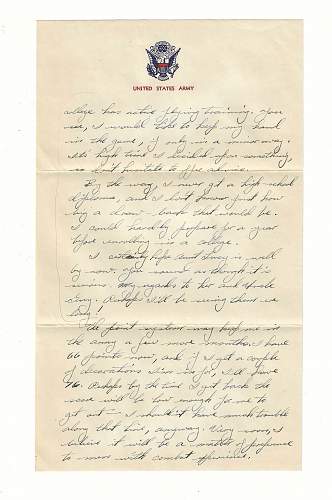 UNITED STATES ARMY
college has active flying training. You
see, I would like to keep my hand
in the game, if only in a minor way.
It's high time I decided for something,
so don't hesitate to offer advice.
By the way, I never got a high-school
diploma, and I don't know just how
big a draw-back that would be.
I could hardly prepare for a year
before enrolling in a college.
I certainly hope Aunt is well
by now. You sound as though it is
serious. My regards to her and Uncle
. Perhaps I'll be seeing them ere
long!
The point system may keep me in
the army a few more months. I have
66 points now, and if I get a couple
of decorations I'm in for, I'll have
76. Perhaps by the time I get back the
score will be low enough for me to
get out — I shouldn't have much trouble
along that line, anyway. Very soon, I
believe it will be a matter of preference
to men with combat experience.